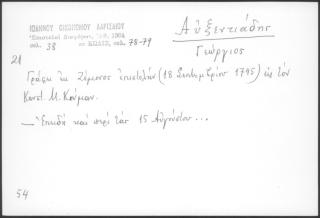 ΙΩΑΝΝΟΥ ΟΙΚΟΝΟΜΟΥ ΛΑΡΙΣΑΙΟΥ
Ἐπιστολαὶ Διαφόρων, Ἀθ. 1964
σελ. 38 σελ. 78-79
Αὐξεντιάδης
Γεώργιος
21
Γράφει ἐκ Ζέμονος ἐπιστολήν (18 Σεπτεμβρίου 1795) εἰς τόν
Κωνστ. Μ. Κούμαν.
— Ἐπειδή καί περί τάς 15 Αὐγούστου...
54